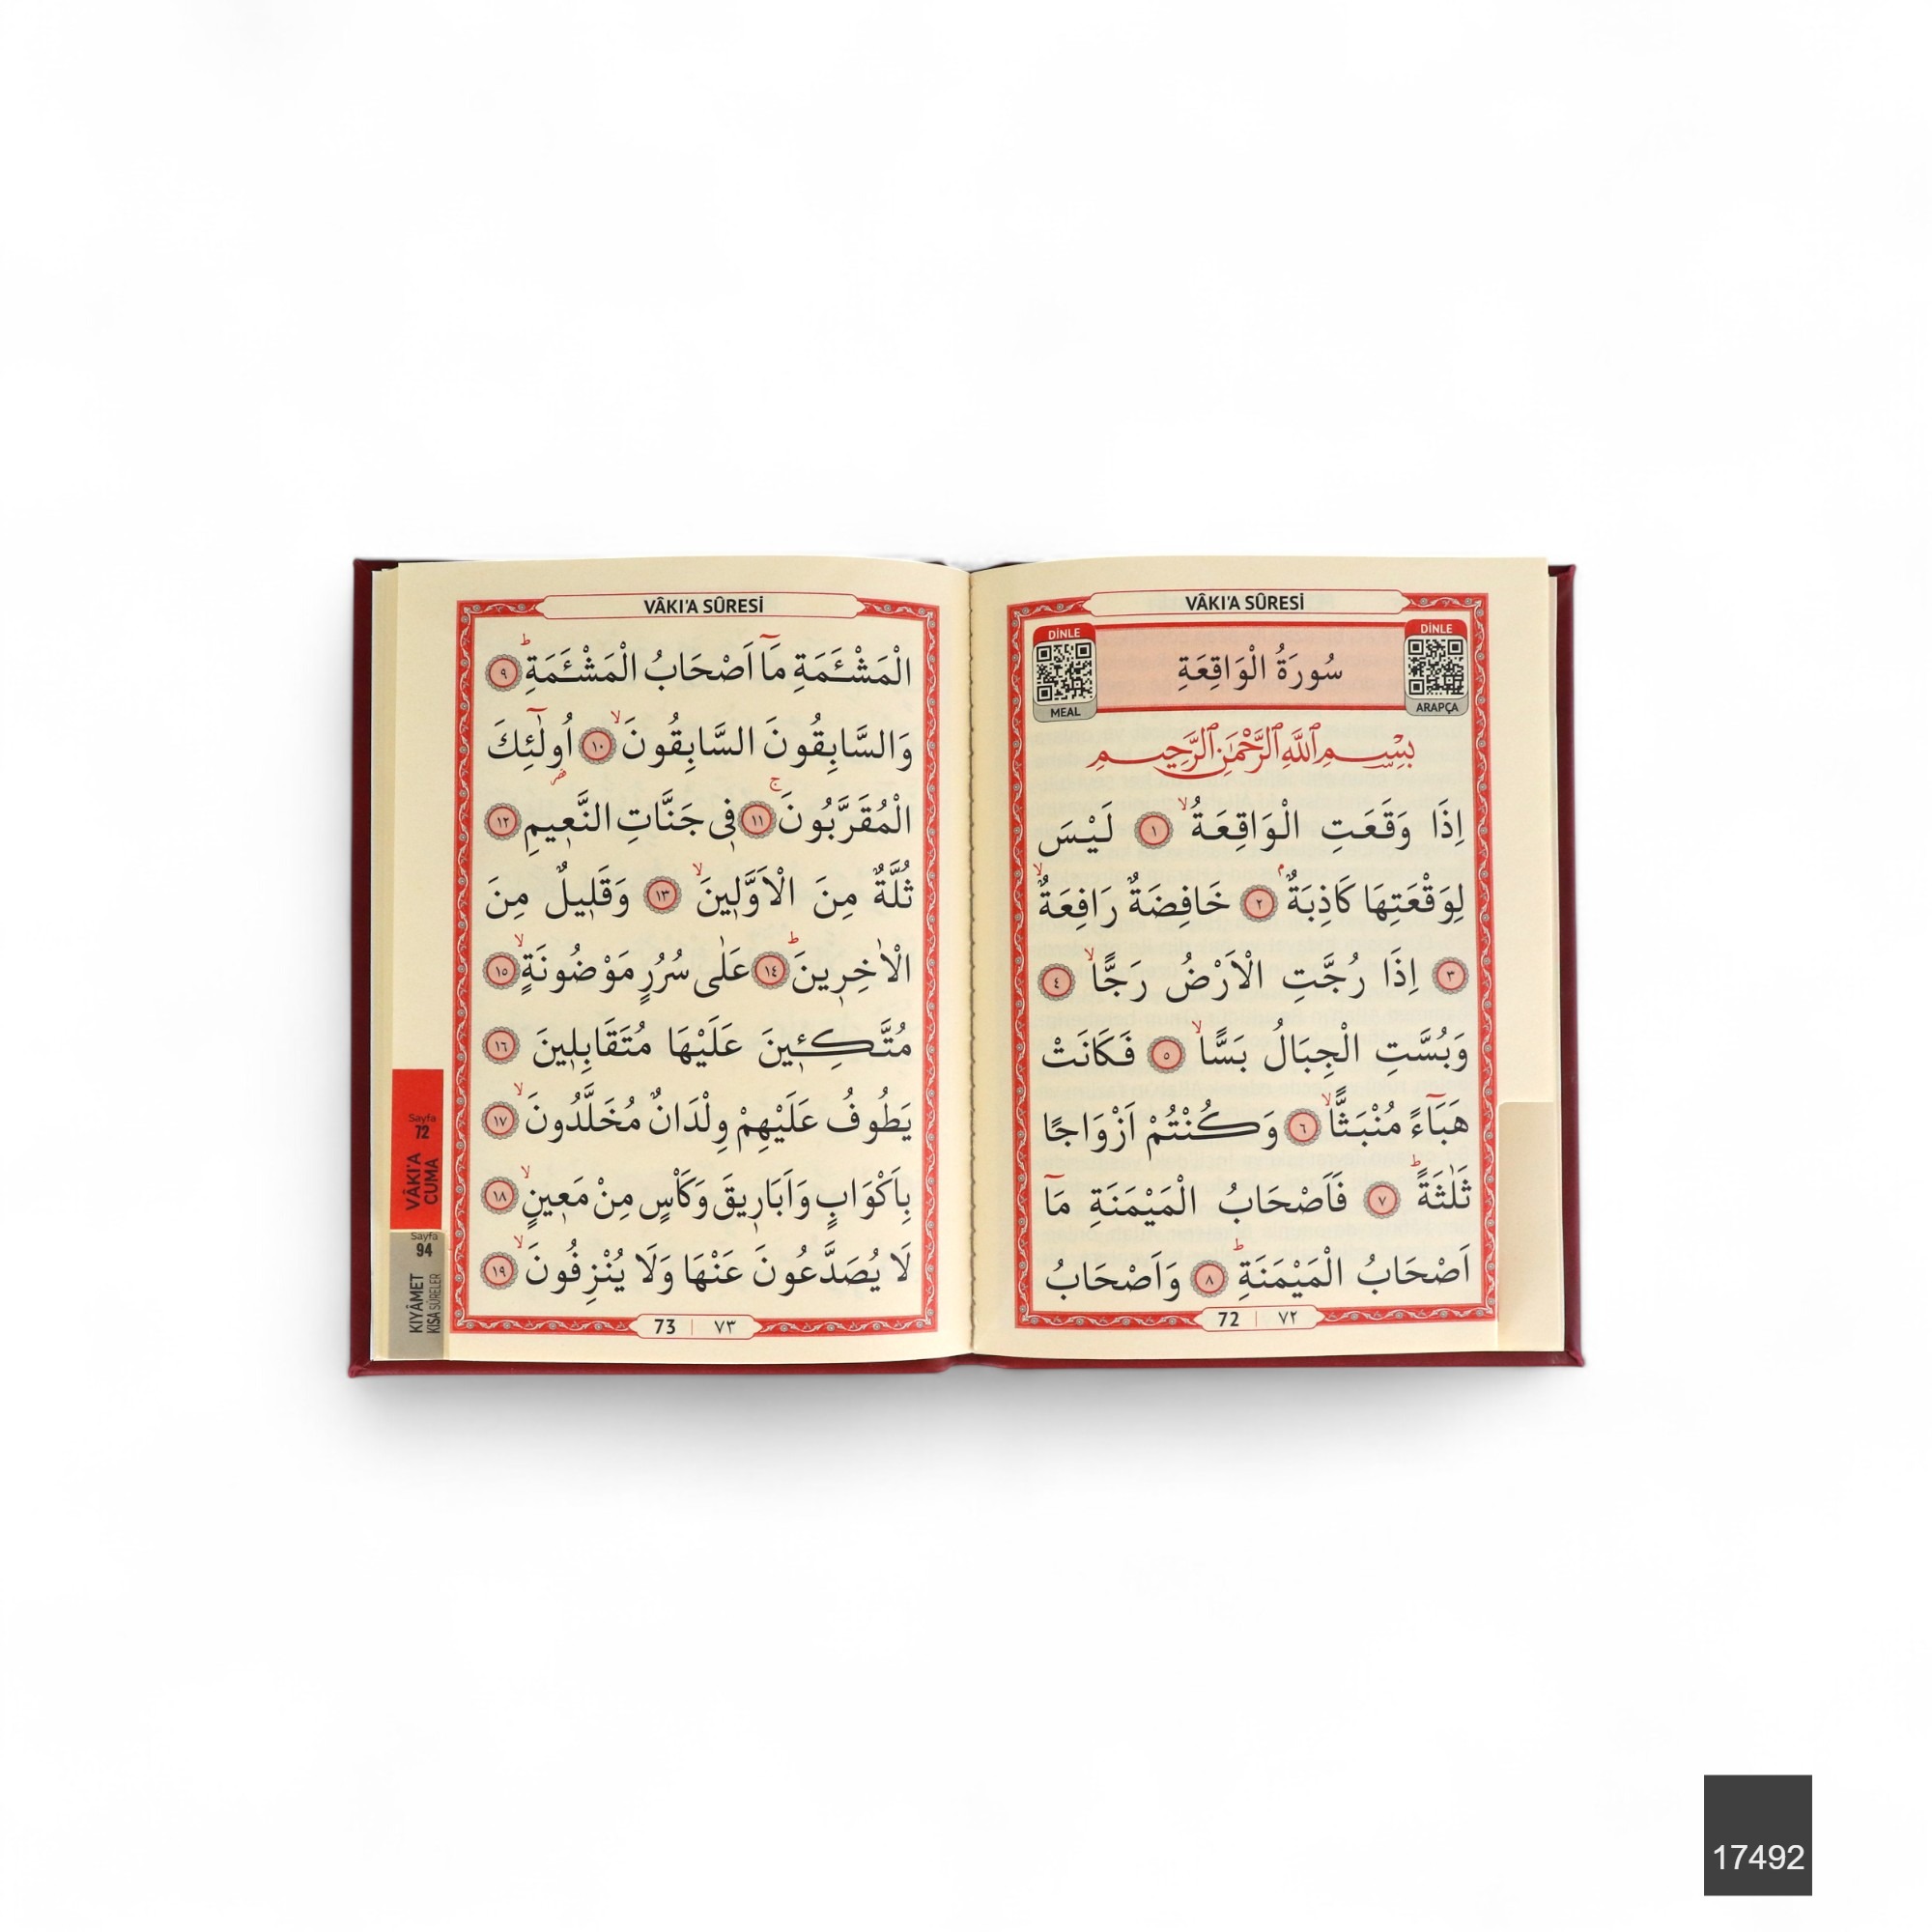 VÂKI'A SÛRESİ
DİNLE
MEAL
سُورَةُ الْوَاقِعَةِ
DİNLE
ARAPÇA
بِسْمِ اللّٰهِ الرَّحْمٰنِ الرَّحِيمِ
اِذَا وَقَعَتِ الْوَاقِعَةُۙ ١ لَيْسَ
لِوَقْعَتِهَا كَاذِبَةٌۢ ٢ خَافِضَةٌ رَافِعَةٌۙ
٣ اِذَا رُجَّتِ الْاَرْضُ رَجًّاۙ ٤
وَبُسَّتِ الْجِبَالُ بَسًّاۙ ٥ فَكَانَتْ
هَبَآءً مُنْبَثًّاۙ ٦ وَكُنْتُمْ اَزْوَاجًا
ثَلٰثَةًۜ ٧ فَاَصْحَابُ الْمَيْمَنَةِ مَآ
اَصْحَابُ الْمَيْمَنَةِۜ ٨ وَاَصْحَابُ
72 | ٧٢
VÂKI'A SÛRESİ
الْمَشْـَٔمَةِ مَآ اَصْحَابُ الْمَشْـَٔمَةِۜ ٩
وَالسَّابِقُونَ السَّابِقُونَۙ ١٠ اُولٰٓئِكَ
الْمُقَرَّبُونَۚ ١١ فٖي جَنَّاتِ النَّعٖيمِ ١٢
ثُلَّةٌ مِنَ الْاَوَّلٖينَۙ ١٣ وَقَلٖيلٌ مِنَ
الْاٰخِرٖينَۜ ١٤ عَلٰى سُرُرٍ مَوْضُونَةٍۙ ١٥
مُتَّكِـٖٔينَ عَلَيْهَا مُتَقَابِلٖينَ ١٦
يَطُوفُ عَلَيْهِمْ وِلْدَانٌ مُخَلَّدُونَۙ ١٧
بِاَكْوَابٍ وَاَبَارٖيقَ وَكَأْسٍ مِنْ مَعٖينٍۙ ١٨
لَا يُصَدَّعُونَ عَنْهَا وَلَا يُنْزِفُونَۙ ١٩
73 | ٧٣
Sayfa
72
VÂKI'A
CUMA
Sayfa
94
KIYÂMET
KISA SÛRELER
17492